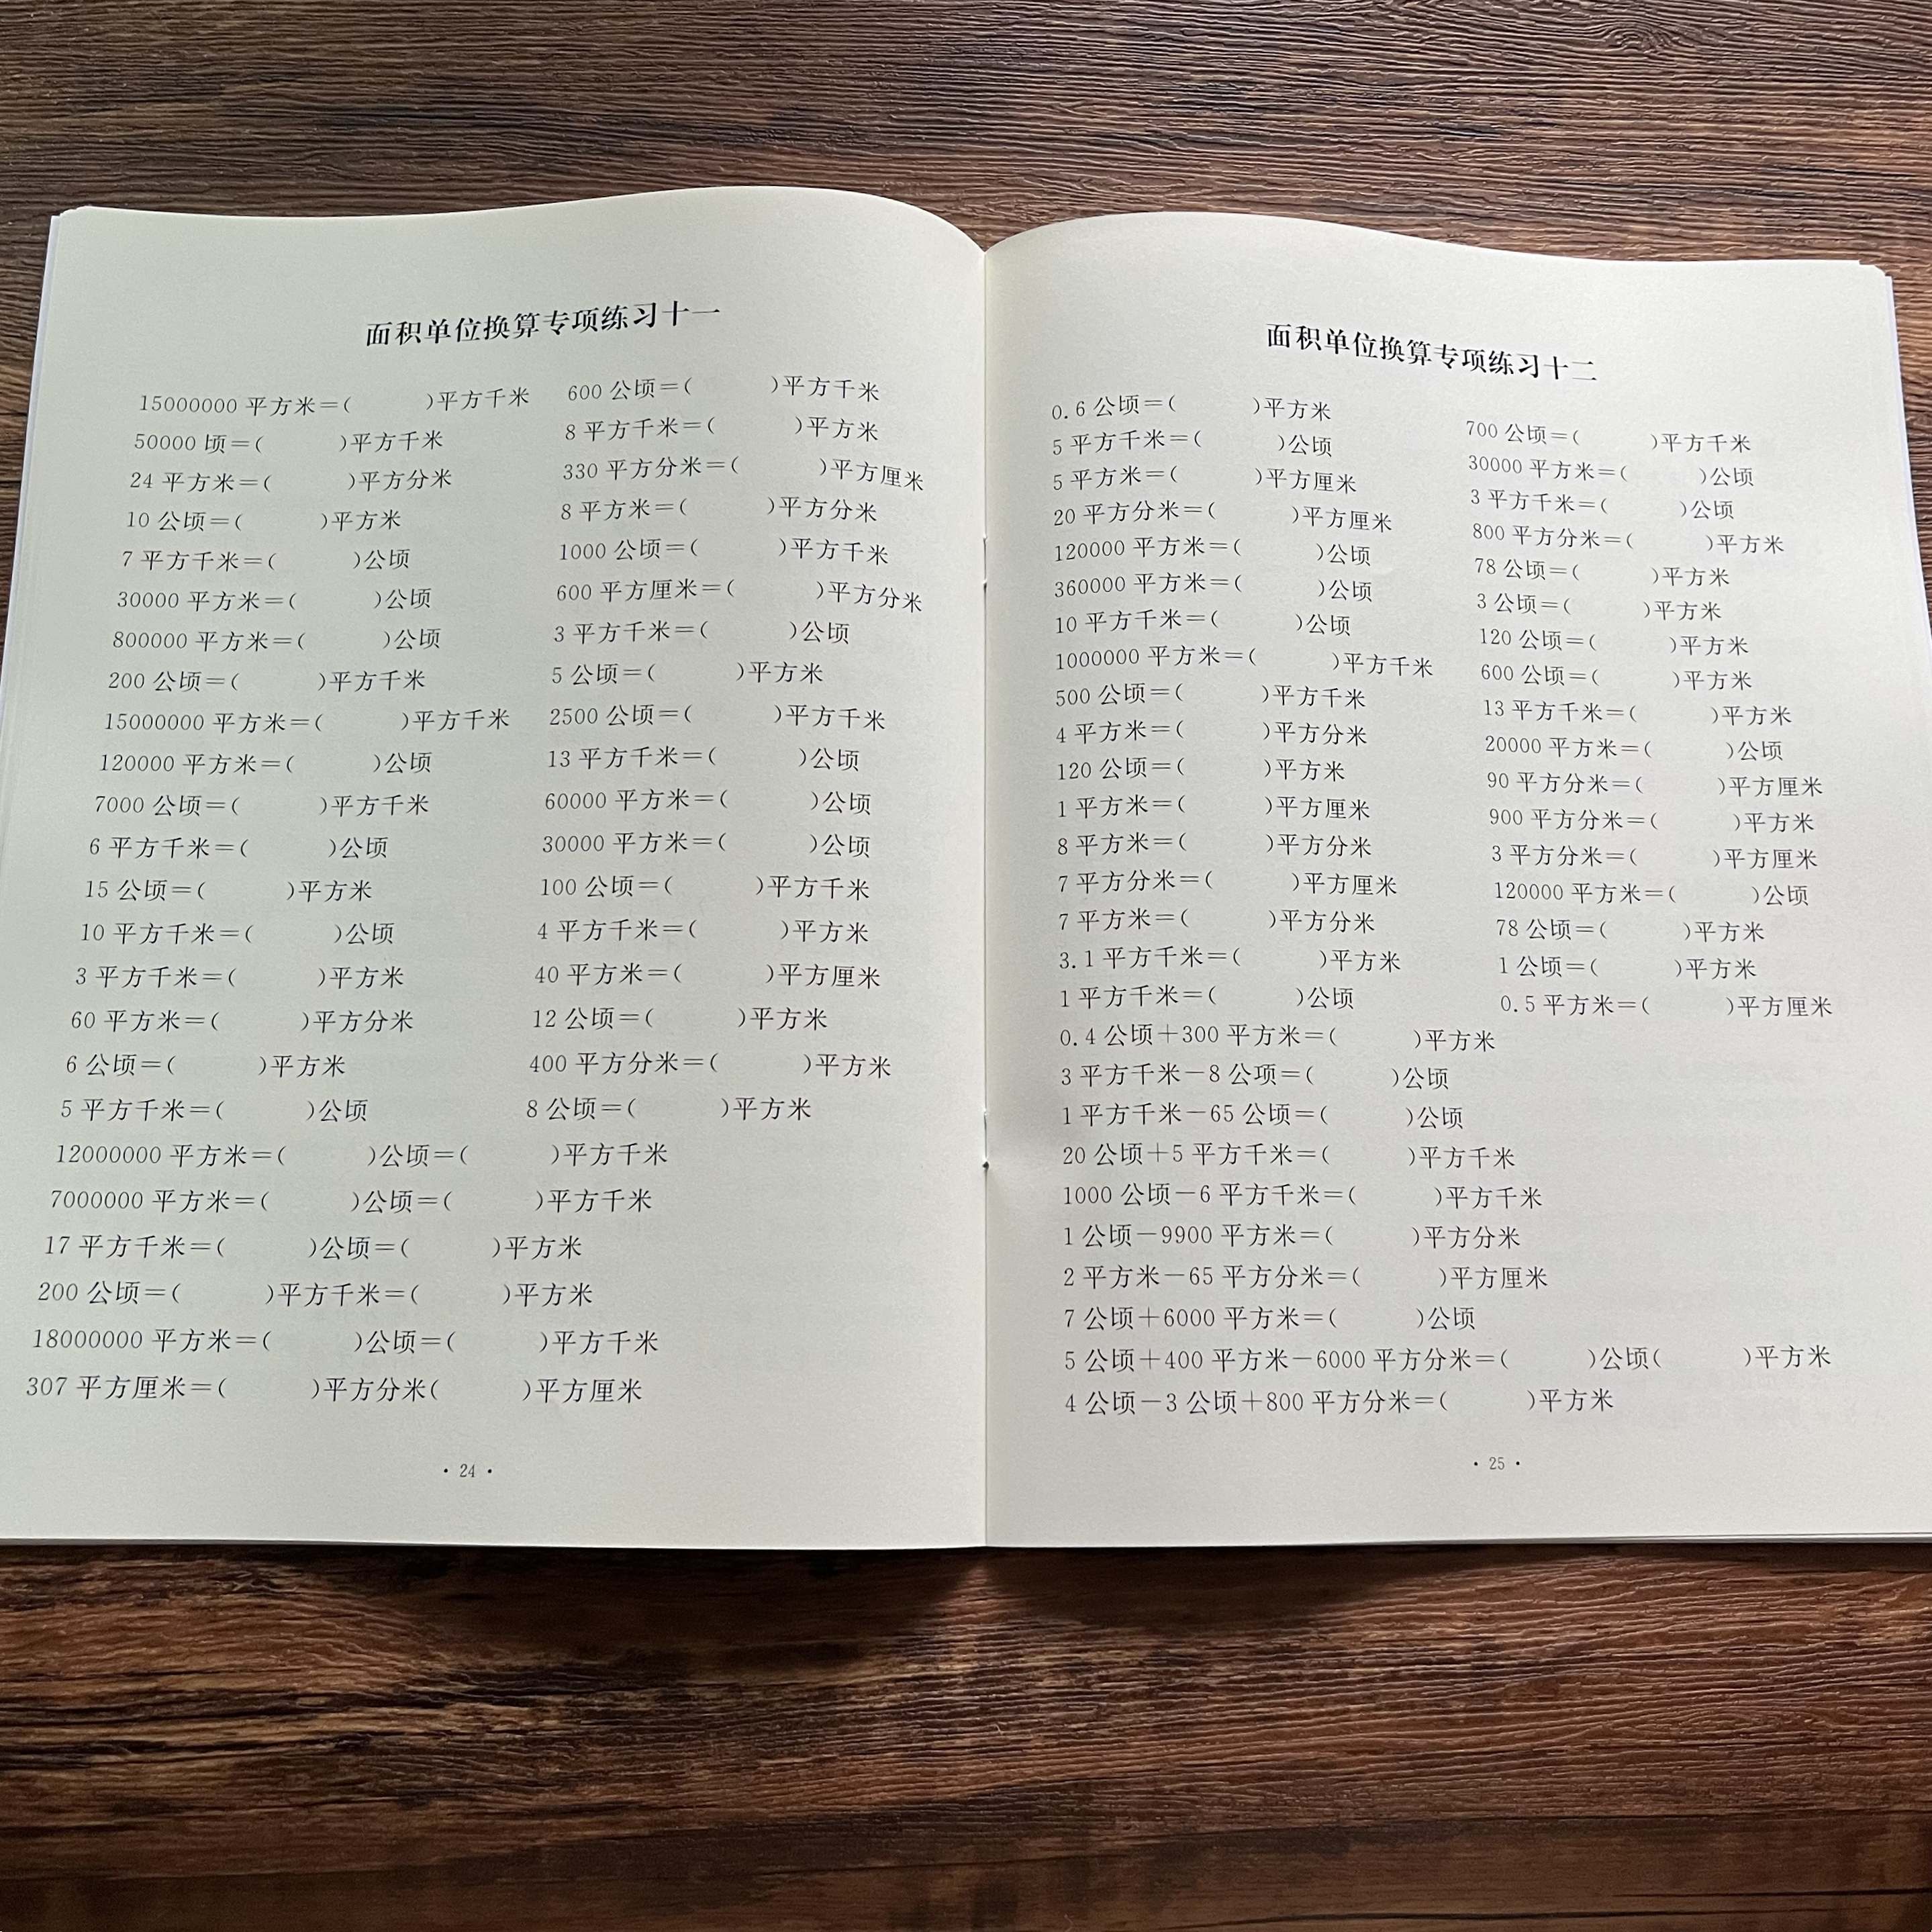 面积单位换算专项练习十一
15000000 平方米=( )平方千米
50000 顷=( )平方千米
24 平方米=( )平方分米
10 公顷=( )平方米
7 平方千米=( )公顷
30000 平方米=( )公顷
800000 平方米=( )公顷
200 公顷=( )平方千米
15000000 平方米=( )平方千米
120000 平方米=( )公顷
7000 公顷=( )平方千米
6 平方千米=( )公顷
15 公顷=( )平方米
10 平方千米=( )公顷
3 平方千米=( )平方米
60 平方米=( )平方分米
6 公顷=( )平方米
5 平方千米=( )公顷
600 公顷=( )平方千米
8 平方千米=( )平方米
330 平方分米=( )平方厘米
8 平方米=( )平方分米
1000 公顷=( )平方千米
600 平方厘米=( )平方分米
3 平方千米=( )公顷
5 公顷=( )平方米
2500 公顷=( )平方千米
13 平方千米=( )公顷
60000 平方米=( )公顷
30000 平方米=( )公顷
100 公顷=( )平方千米
4 平方千米=( )平方米
40 平方米=( )平方厘米
12 公顷=( )平方米
400 平方分米=( )平方米
8 公顷=( )平方米
12000000 平方米=( )公顷=( )平方千米
7000000 平方米=( )公顷=( )平方千米
17 平方千米=( )公顷=( )平方米
200 公顷=( )平方千米=( )平方米
18000000 平方米=( )公顷=( )平方千米
307 平方厘米=( )平方分米( )平方厘米
· 24 ·
面积单位换算专项练习十二
0.6 公顷=( )平方米
5 平方千米=( )公顷
5 平方米=( )平方厘米
20 平方分米=( )平方厘米
120000 平方米=( )公顷
360000 平方米=( )公顷
10 平方千米=( )公顷
1000000 平方米=( )平方千米
500 公顷=( )平方千米
4 平方米=( )平方分米
120 公顷=( )平方米
1 平方米=( )平方厘米
8 平方米=( )平方分米
7 平方分米=( )平方厘米
7 平方米=( )平方分米
3.1 平方千米=( )平方米
1 平方千米=( )公顷
700 公顷=( )平方千米
30000 平方米=( )公顷
3 平方千米=( )公顷
800 平方分米=( )平方米
78 公顷=( )平方米
3 公顷=( )平方米
120 公顷=( )平方米
600 公顷=( )平方米
13 平方千米=( )平方米
20000 平方米=( )公顷
90 平方分米=( )平方厘米
900 平方分米=( )平方米
3 平方分米=( )平方厘米
120000 平方米=( )公顷
78 公顷=( )平方米
1 公顷=( )平方米
0.5 平方米=( )平方厘米
0.4 公顷+300 平方米=( )平方米
3 平方千米-8 公项=( )公顷
1 平方千米-65 公顷=( )公顷
20 公顷+5 平方千米=( )平方千米
1000 公顷-6 平方千米=( )平方千米
1 公顷-9900 平方米=( )平方分米
2 平方米-65 平方分米=( )平方厘米
7 公顷+6000 平方米=( )公顷
5 公顷+400 平方米-6000 平方分米=( )公顷( )平方米
4 公顷-3 公顷+800 平方分米=( )平方米
· 25 ·